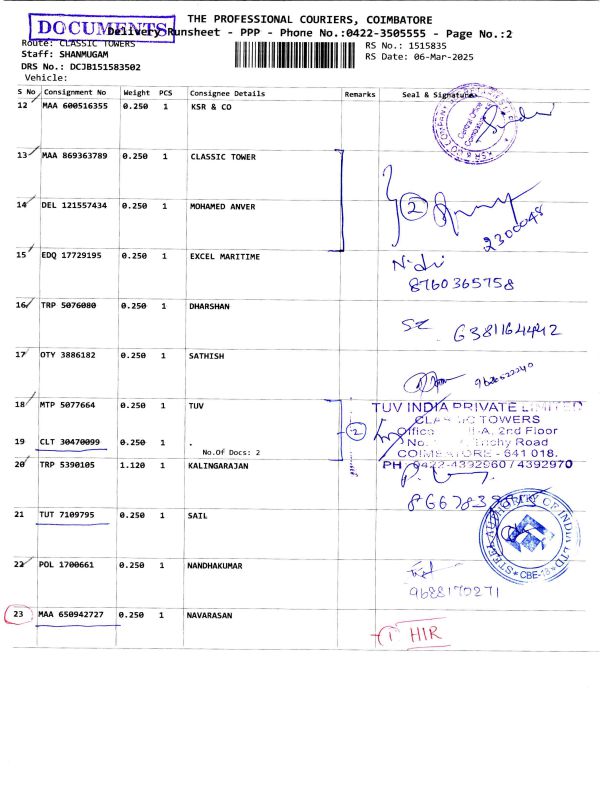 THE PROFESSIONAL COURIERS, COIMBATORE
DOCUMENTS
Delivery Runsheet - PPP - Phone No.:0422-3505555 - Page No.:2
Route: CLASSIC TOWERS
RS No.: 1515835
Staff: SHANMUGAM
RS Date: 06-Mar-2025
DRS No.: DCJB151583502
Vehicle:
S No Consignment No Weight PCS Consignee Details Remarks Seal & Signature
12 MAA 600516355 0.250 1 KSR & CO
Central Office
13 MAA 869363789 0.250 1 CLASSIC TOWER
2
14 DEL 121557434 0.250 1 MOHAMED ANVER
2300048
15 EDQ 17729195 0.250 1 EXCEL MARITIME
8760365758
16 TRP 5076080 0.250 1 DHARSHAN
6381164442
17 OTY 3886182 0.250 1 SATHISH
18 MTP 5077664 0.250 1 TUV
TUV INDIA PRIVATE LIMITED
CLASSIC TOWERS
2
A, 2nd Floor
19 CLT 30470099 0.250 1 .
Trichy Road
No.Of Docs: 2
COIMBATORE - 641 018.
20 TRP 5390105 1.120 1 KALINGARAJAN
PH 0422-4392960 / 4392970
21 TUT 7109795 0.250 1 SAIL
STEEL AUTHORITY OF INDIA LTD.
CBE-18
22 POL 1700661 0.250 1 NANDHAKUMAR
9688170271
23 MAA 650942727 0.250 1 NAVARASAN
1 HIR